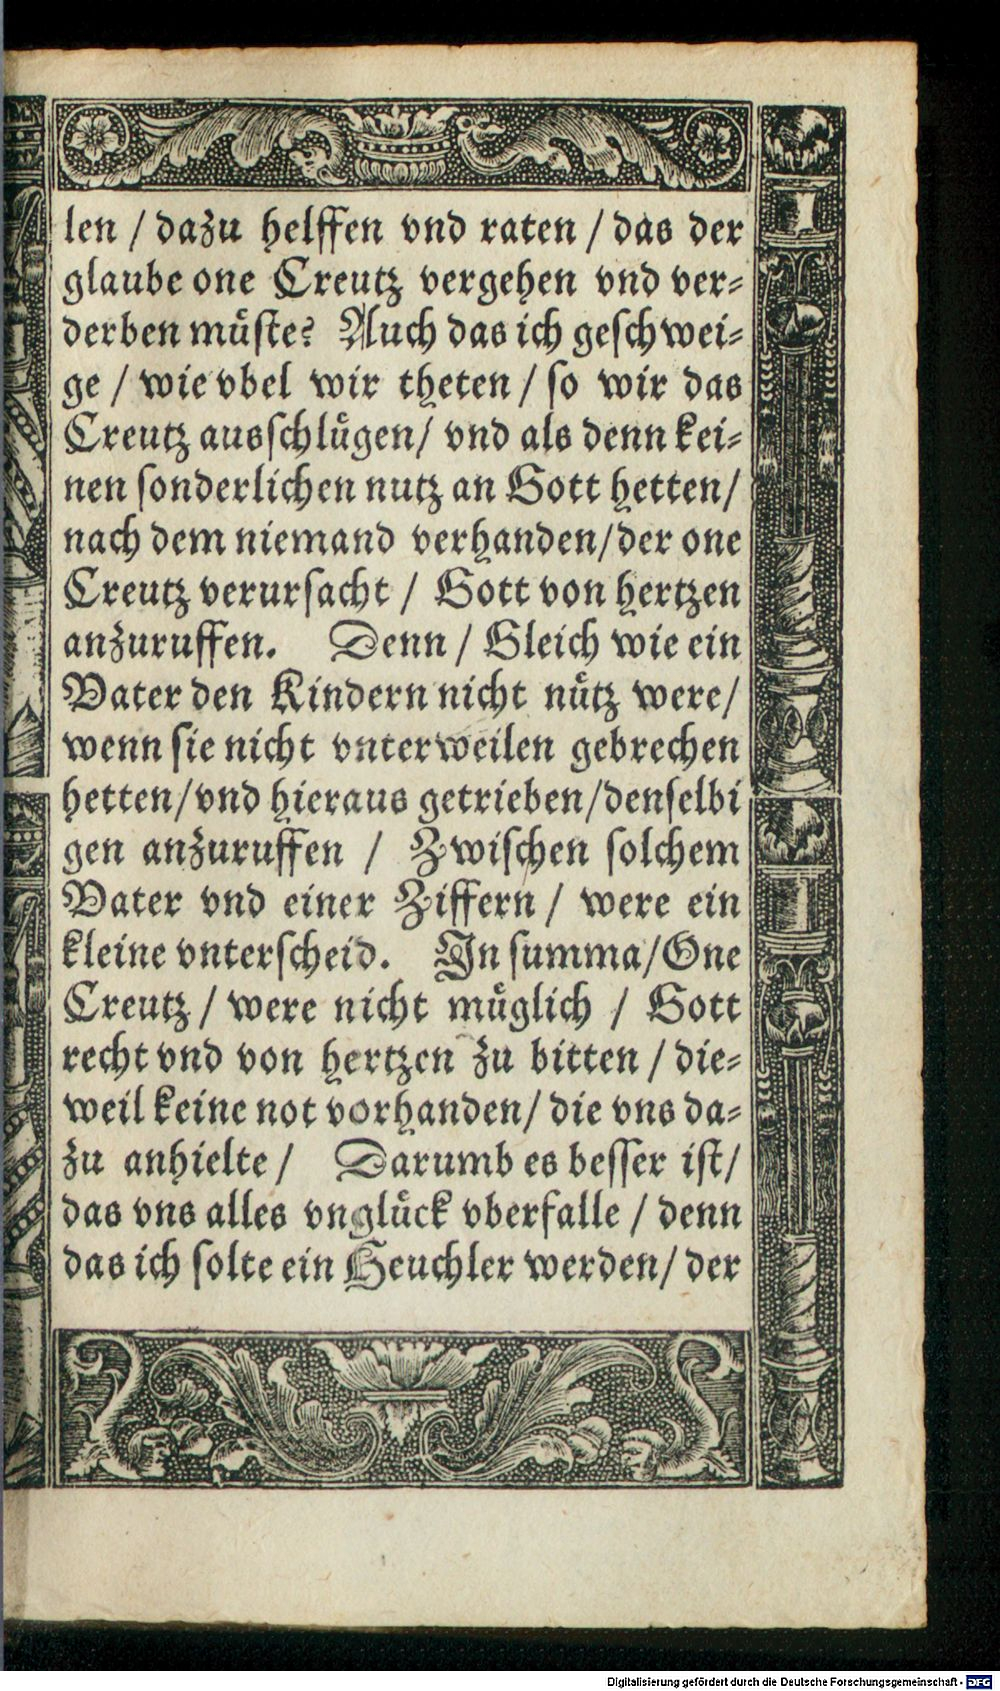 len / dazu helffen vnd raten / das der
glaube one Creutz vergehen vnd ver⸗
derben müste? Auch das ich geschwei⸗
ge / wie vbel wir theten / so wir das
Creutz ausschlügen / vnd als denn kei⸗
nen sonderlichen nutz an Gott hetten /
nach dem niemand verhanden / der one
Creutz verursacht / Gott von hertzen
anzuruffen. Denn / Gleich wie ein
Vater den Kindern nicht nütz were /
wenn sie nicht vnterweilen gebrechen
hetten / vnd hieraus getrieben / denselbi
gen anzuruffen / Zwischen solchem
Vater vnd einer Ziffern / were ein
kleine vnterscheid. In summa / One
Creutz / were nicht müglich / Gott
recht vnd von hertzen zu bitten / die⸗
weil keine not vorhanden / die vns da⸗
zu anhielte / Darumb es besser ist /
das vns alles vnglück vberfalle / denn
das ich solte ein Heuchler werden / der
Digitalisierung gefördert durch die Deutsche Forschungsgemeinschaft - DFG